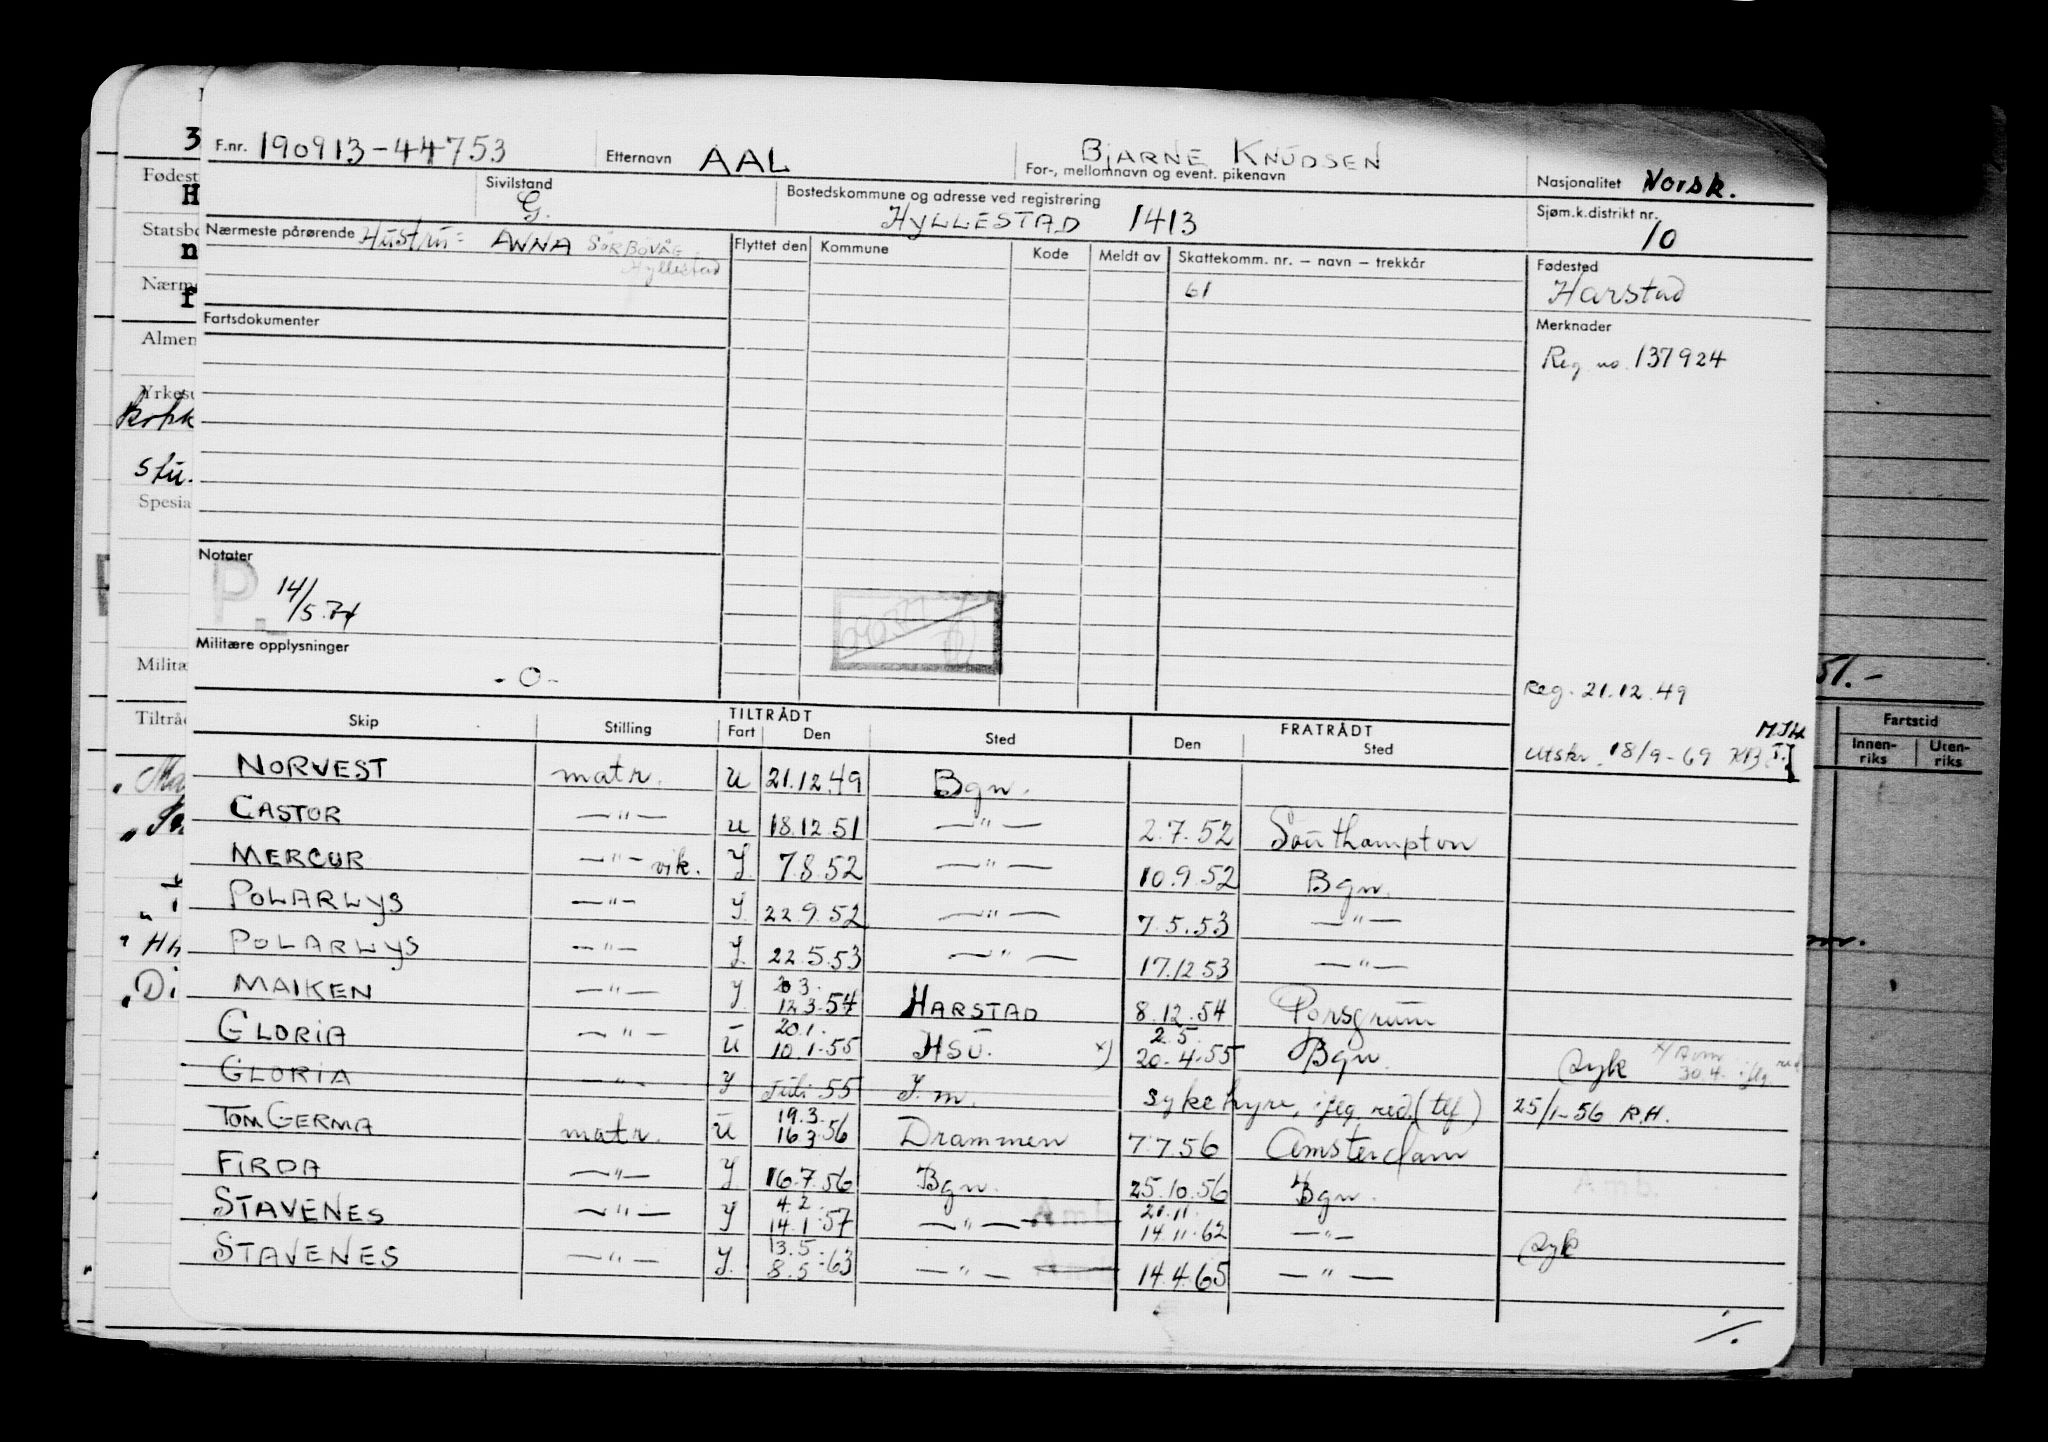 F.nr. 190913-44753 Etternavn AAL BJARNE KNUDSEN
For-, mellomnavn og event. pikenavn
Nasjonalitet Norsk.
Sivilstand G. Bostedskommune og adresse ved registrering
HYLLESTAD 1413
Sjøm.k.distrikt nr. 10
Nærmeste pårørende Hustru: ANNA SØRBØVÅG
Hyllestad
Flyttet den Kommune Kode Meldt av Skattekomm. nr. – navn – trekkår
61
Fødested
Harstad
Fartsdokumenter
Merknader
Reg no. 137924
Notater
14/5.74
Militære opplysninger
-0-
Reg. 21.12.49
Utskr. 18/9-69
TILTRÅDT FRATRÅDT
Skip Stilling Fart Den Sted Den Sted
NORVEST matr. U 21.12.49 Bgn.
CASTOR —"— U 18.12.51 —"— 2.7.52 Southampton
MERCUR —"— vik. J. 7.8.52 —"— 10.9.52 Bgn.
POLARLYS —"— J. 22.9.52 —"— 7.5.53 —"—
POLARLYS —"— J. 22.5.53 —"— 17.12.53 —"—
MAIKEN —"— J. 12.3.54 HARSTAD 8.12.54 Porsgrunn
GLORIA —"— U 20.1. 10.1.55 HSU. x) 2.5. 20.4.55 Bgn. Syk
GLORIA —"— J 55 J.m. sykehyre, iflg. red. (tlf) 25/1-56 R.H.
TOM GERMA matr. U 19.3. 16.3.56 Drammen 7.7.56 Amsterdam
FIRDA —"— J 16.7.56 Bgn. 25.10.56 Bgn.
STAVENES —"— J 4.2. 14.1.57 —"— 21.11. 14.11.62 —"— Syk
STAVENES —"— J. 13.5. 8.5.63 —"— 14.4.65 —"—
Fødest
Almen
Spesia
Fartstid
Innen-
riks
Uten-
riks
51.-